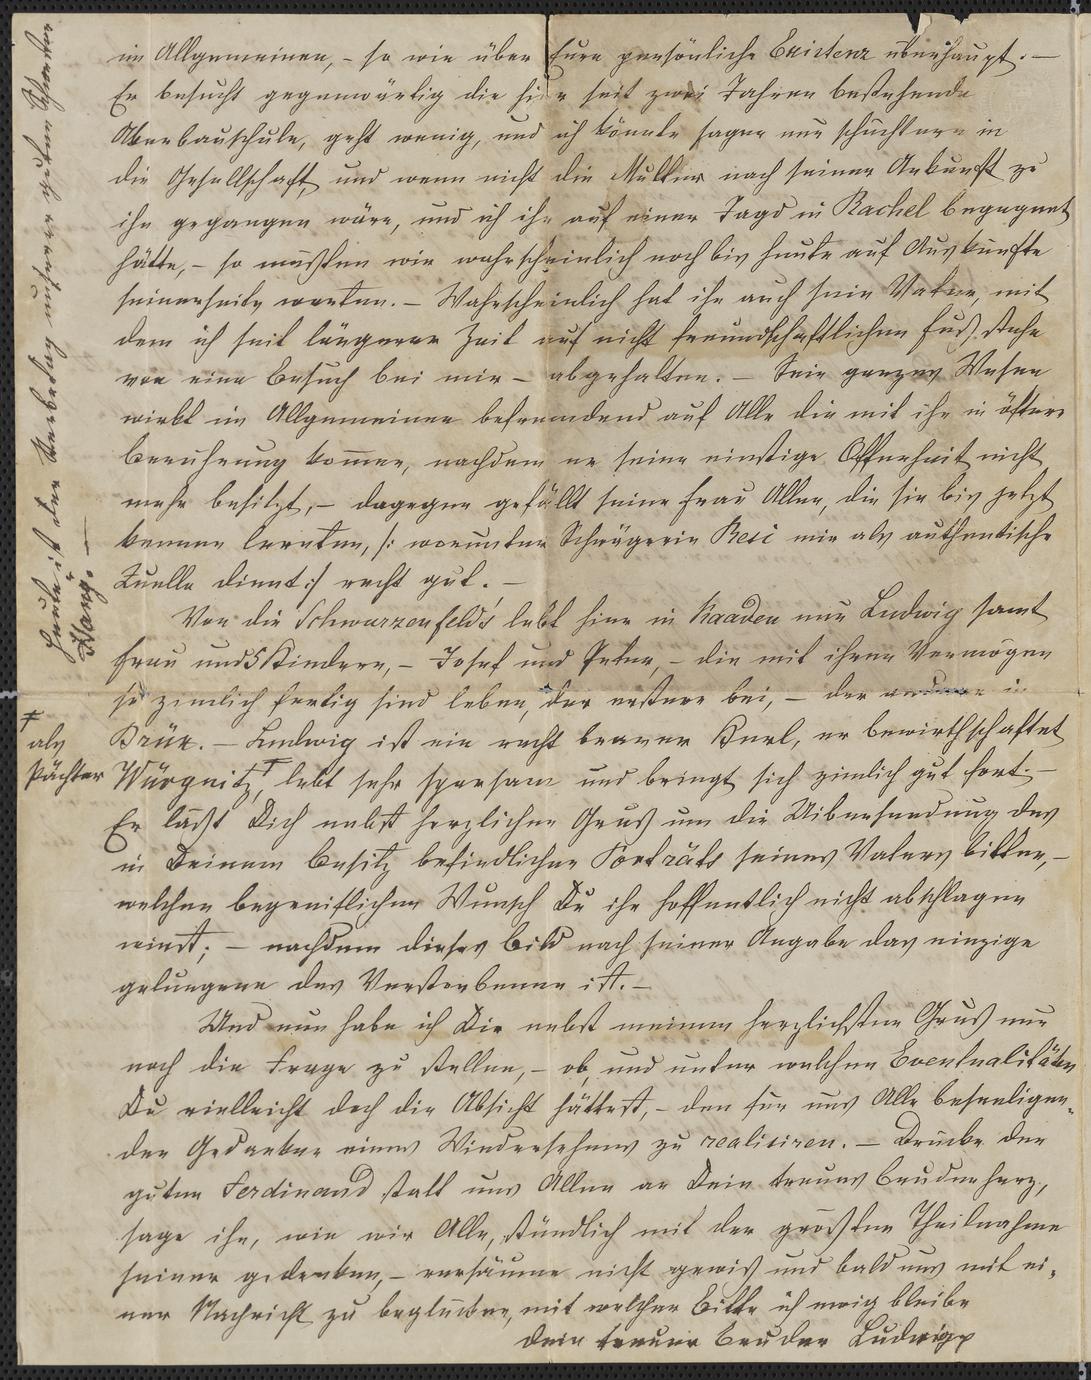 im Allgemeinen, – so wie über Eure persönliche Existenz überhaupt. –
Er besucht gegenwärtig die hier seit zwei Jahren bestehende
Akerbauschule, geht wenig, und ich könnte sagen nur schüchtern in
die Gesellschaft, und wenn nicht die Mutter nach seiner Ankunft zu
ihm gegangen wäre, und ich ihn auf einer Jagd in Rachel begegnet
hätte, – so mußten wir wahrscheinlich noch bis heute auf Auskünfte
seinerseits warten. – Wahrscheinlich hat ihn auch sein Vater, mit
dem ich seit längerer Zeit auf nicht freundschaftlichen Fuß stehe
von eine Besuch bei mir – abgehalten. – Sein ganzes Wesen
wirkt im Allgemeinen befremdend auf Alle die mit ihm in öftere
Berührung komen, nachdem er seine einstige Offenheit nicht
mehr besitzt, – dagegen gefällt seine Frau Allen, die sie bis jetzt
kennen lernten, /: worunter Schwägerin Resi mir als authentische
Quelle dient :/ recht gut. –
Von die Schwarzenfeld's lebt hier in Kaaden nur Ludwig samt
Frau und 5 Kindern, – Josef und Peter, – die mit ihren Vermögen
so zimlich fertig sind leben, der erstere bei, – der andere in
Brüx. – Ludwig ist ein recht braver Kerl, er bewirthschaftet
Würgnitz ‡, lebt sehr sparsam und bringt sich zimlich gut fort. –
‡
als
Pächter
Er läßt Dich nebst herzlichen Gruß um die Uibersendung des
in Deinem Besitz befindlichen Porträts seines Vaters bitten, –
welchen begreiflichen Wunsch Du ihm hoffentlich nicht abschlagen
wirst; – nachdem dieses Bild nach seiner Angabe das einzige
gelungene des Verstorbenen ist. –
Und nun habe ich Dir nebst meinem herzlichsten Gruß nur
noch die Frage zu stellen, – ob, und unter welchen Eventualitäten
Du vielleicht doch die Absicht hättest, – den für uns Alle beseeligen-
den Gedanken eines Wiedersehens zu realisiren. – Drücke den
guten Ferdinand statt uns Allen an Dein treues Bruderherz,
sage ihm, wie wir Alle, stündlich mit der größten Theilnahme
seiner gedenken, – versäume nicht gewiß und bald uns mit ei-
ner Nachricht zu beglücken, mit welcher Bitte ich ewig bleibe
Dein treuer Bruder Ludwig
Heute ist der Sterbetag unserer guten Schwester